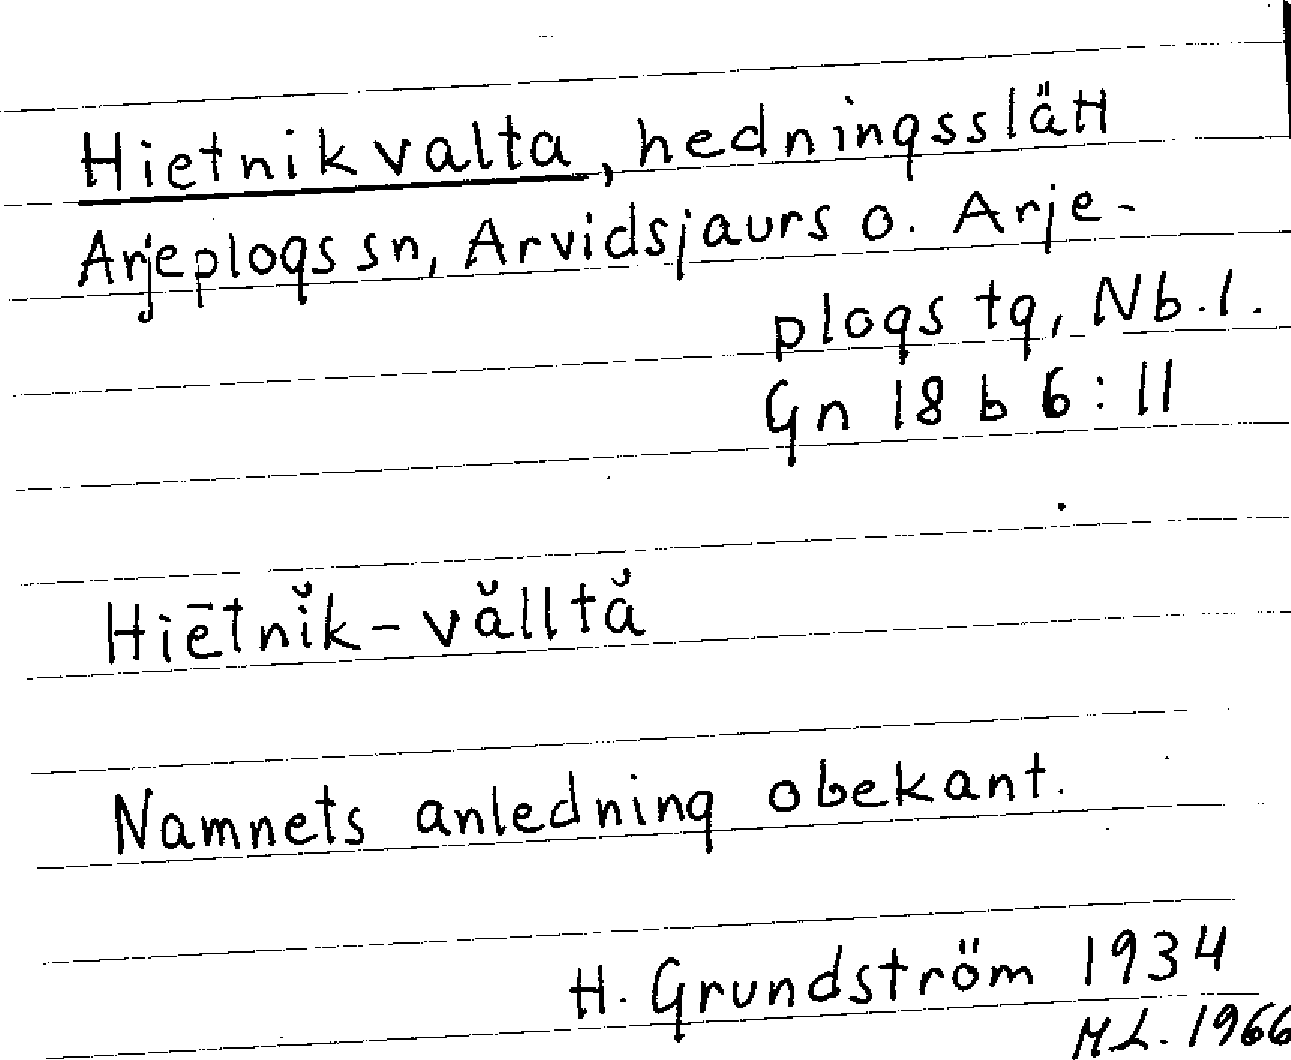 Hietnikvalta, hedningsslätt
Arjeplogs sn, Arvidsjaurs o. Arje-
plogs tg, Nb.l.
Gn 18 b 6:11
Hiē̄tnĭk-vălltă
Namnets anledning obekant.
H. Grundström 1934
M.L. 1966